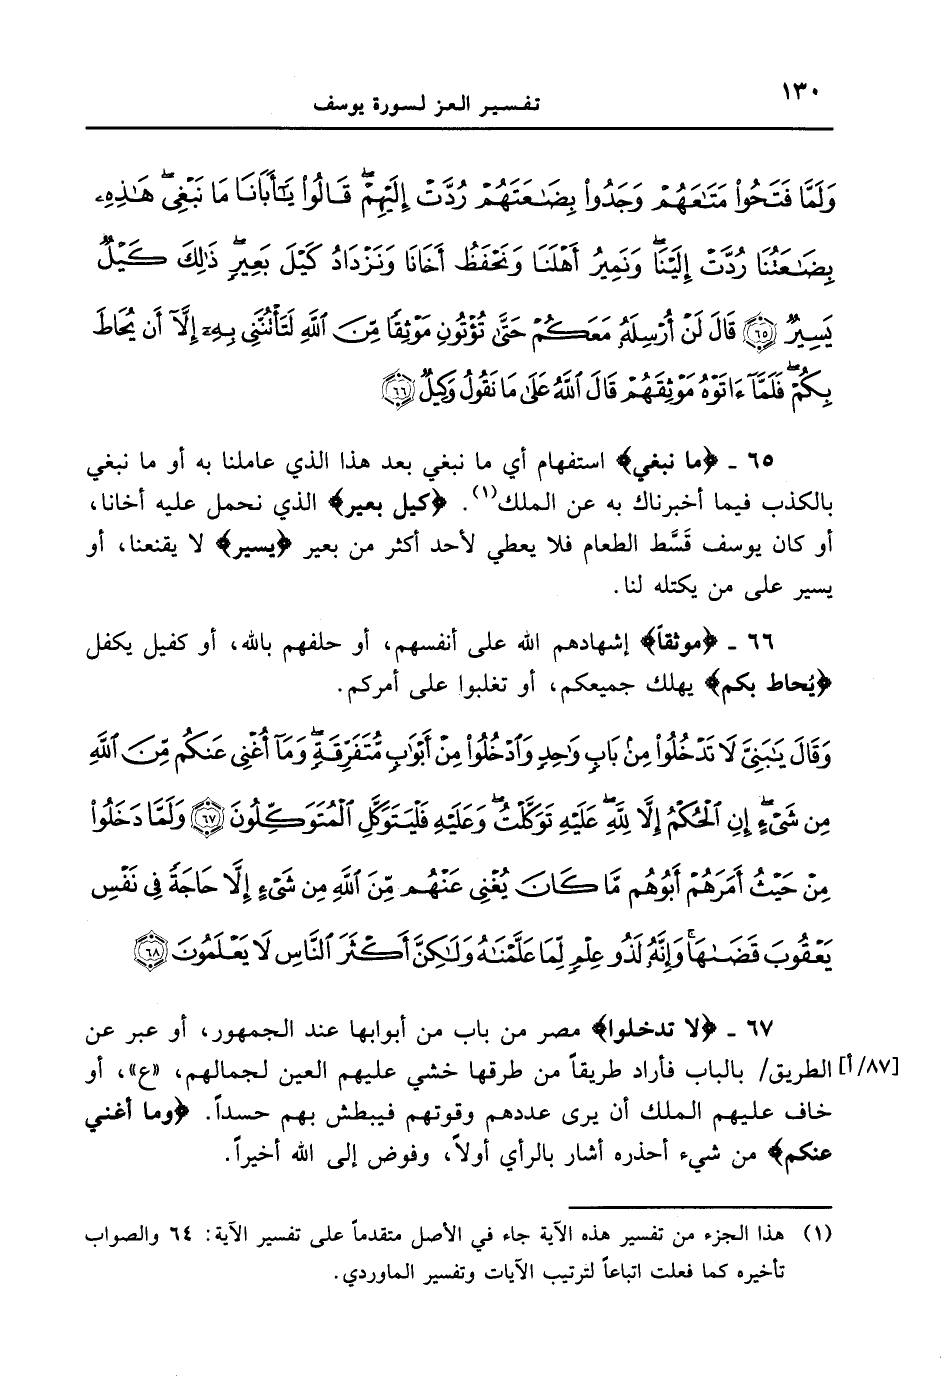 ١٣٠
تفسير العز لسورة يوسف
وَلَمَّا فَتَحُوا۟ مَتَـٰعَهُمْ وَجَدُوا۟ بِضَـٰعَتَهُمْ رُدَّتْ إِلَيْهِمْ ۖ قَالُوا۟ يَـٰٓأَبَانَا مَا نَبْغِى ۖ هَـٰذِهِۦ
بِضَـٰعَتُنَا رُدَّتْ إِلَيْنَا ۖ وَنَمِيرُ أَهْلَنَا وَنَحْفَظُ أَخَانَا وَنَزْدَادُ كَيْلَ بَعِيرٍ ۖ ذَٰلِكَ كَيْلٌ
يَسِيرٌ ﴿٦٥﴾ قَالَ لَنْ أُرْسِلَهُۥ مَعَكُمْ حَتَّىٰ تُؤْتُونِ مَوْثِقًا مِّنَ ٱللَّهِ لَتَأْتُنَّنِى بِهِۦٓ إِلَّآ أَن يُحَاطَ
بِكُمْ ۖ فَلَمَّآ ءَاتَوْهُ مَوْثِقَهُمْ قَالَ ٱللَّهُ عَلَىٰ مَا نَقُولُ وَكِيلٌ ﴿٦٦﴾
٦٥ ـ ﴿ما نبغي﴾ استفهام أي ما نبغي بعد هذا الذي عاملنا به أو ما نبغي
بالكذب فيما أخبرناك به عن الملك(١). ﴿كيل بعير﴾ الذي نحمل عليه أخانا،
أو كان يوسف قَسَّط الطعام فلا يعطي لأحد أكثر من بعير ﴿يسير﴾ لا يقنعنا، أو
يسير على من يكتله لنا.
٦٦ ـ ﴿موثقاً﴾ إشهادهم الله على أنفسهم، أو حلفهم بالله، أو كفيل يكفل
﴿يُحاط بكم﴾ يهلك جميعكم، أو تغلبوا على أمركم.
وَقَالَ يَـٰبَنِىَّ لَا تَدْخُلُوا۟ مِنۢ بَابٍ وَٰحِدٍ وَٱدْخُلُوا۟ مِنْ أَبْوَٰبٍ مُّتَفَرِّقَةٍ ۖ وَمَآ أُغْنِى عَنكُم مِّنَ ٱللَّهِ
مِن شَىْءٍ ۖ إِنِ ٱلْحُكْمُ إِلَّا لِلَّهِ ۖ عَلَيْهِ تَوَكَّلْتُ ۖ وَعَلَيْهِ فَلْيَتَوَكَّلِ ٱلْمُتَوَكِّلُونَ ﴿٦٧﴾ وَلَمَّا دَخَلُوا۟
مِنْ حَيْثُ أَمَرَهُمْ أَبُوهُم مَّا كَانَ يُغْنِى عَنْهُم مِّنَ ٱللَّهِ مِن شَىْءٍ إِلَّا حَاجَةً فِى نَفْسِ
يَعْقُوبَ قَضَىٰهَا ۚ وَإِنَّهُۥ لَذُو عِلْمٍ لِّمَا عَلَّمْنَـٰهُ وَلَـٰكِنَّ أَكْثَرَ ٱلنَّاسِ لَا يَعْلَمُونَ ﴿٦٨﴾
٦٧ ـ ﴿لا تدخلوا﴾ مصر من باب من أبوابها عند الجمهور، أو عبر عن
[٨٧/أ] الطريق/ بالباب فأراد طريقاً من طرقها خشي عليهم العين لجمالهم، «ع»، أو
خاف عليهم الملك أن يرى عددهم وقوتهم فيبطش بهم حسداً. ﴿وما أغني
عنكم﴾ من شيء أحذره أشار بالرأي أولاً، وفوض إلى الله أخيراً.
(١) هذا الجزء من تفسير هذه الآية جاء في الأصل متقدماً على تفسير الآية: ٦٤ والصواب
تأخيره كما فعلت اتباعاً لترتيب الآيات وتفسير الماوردي.